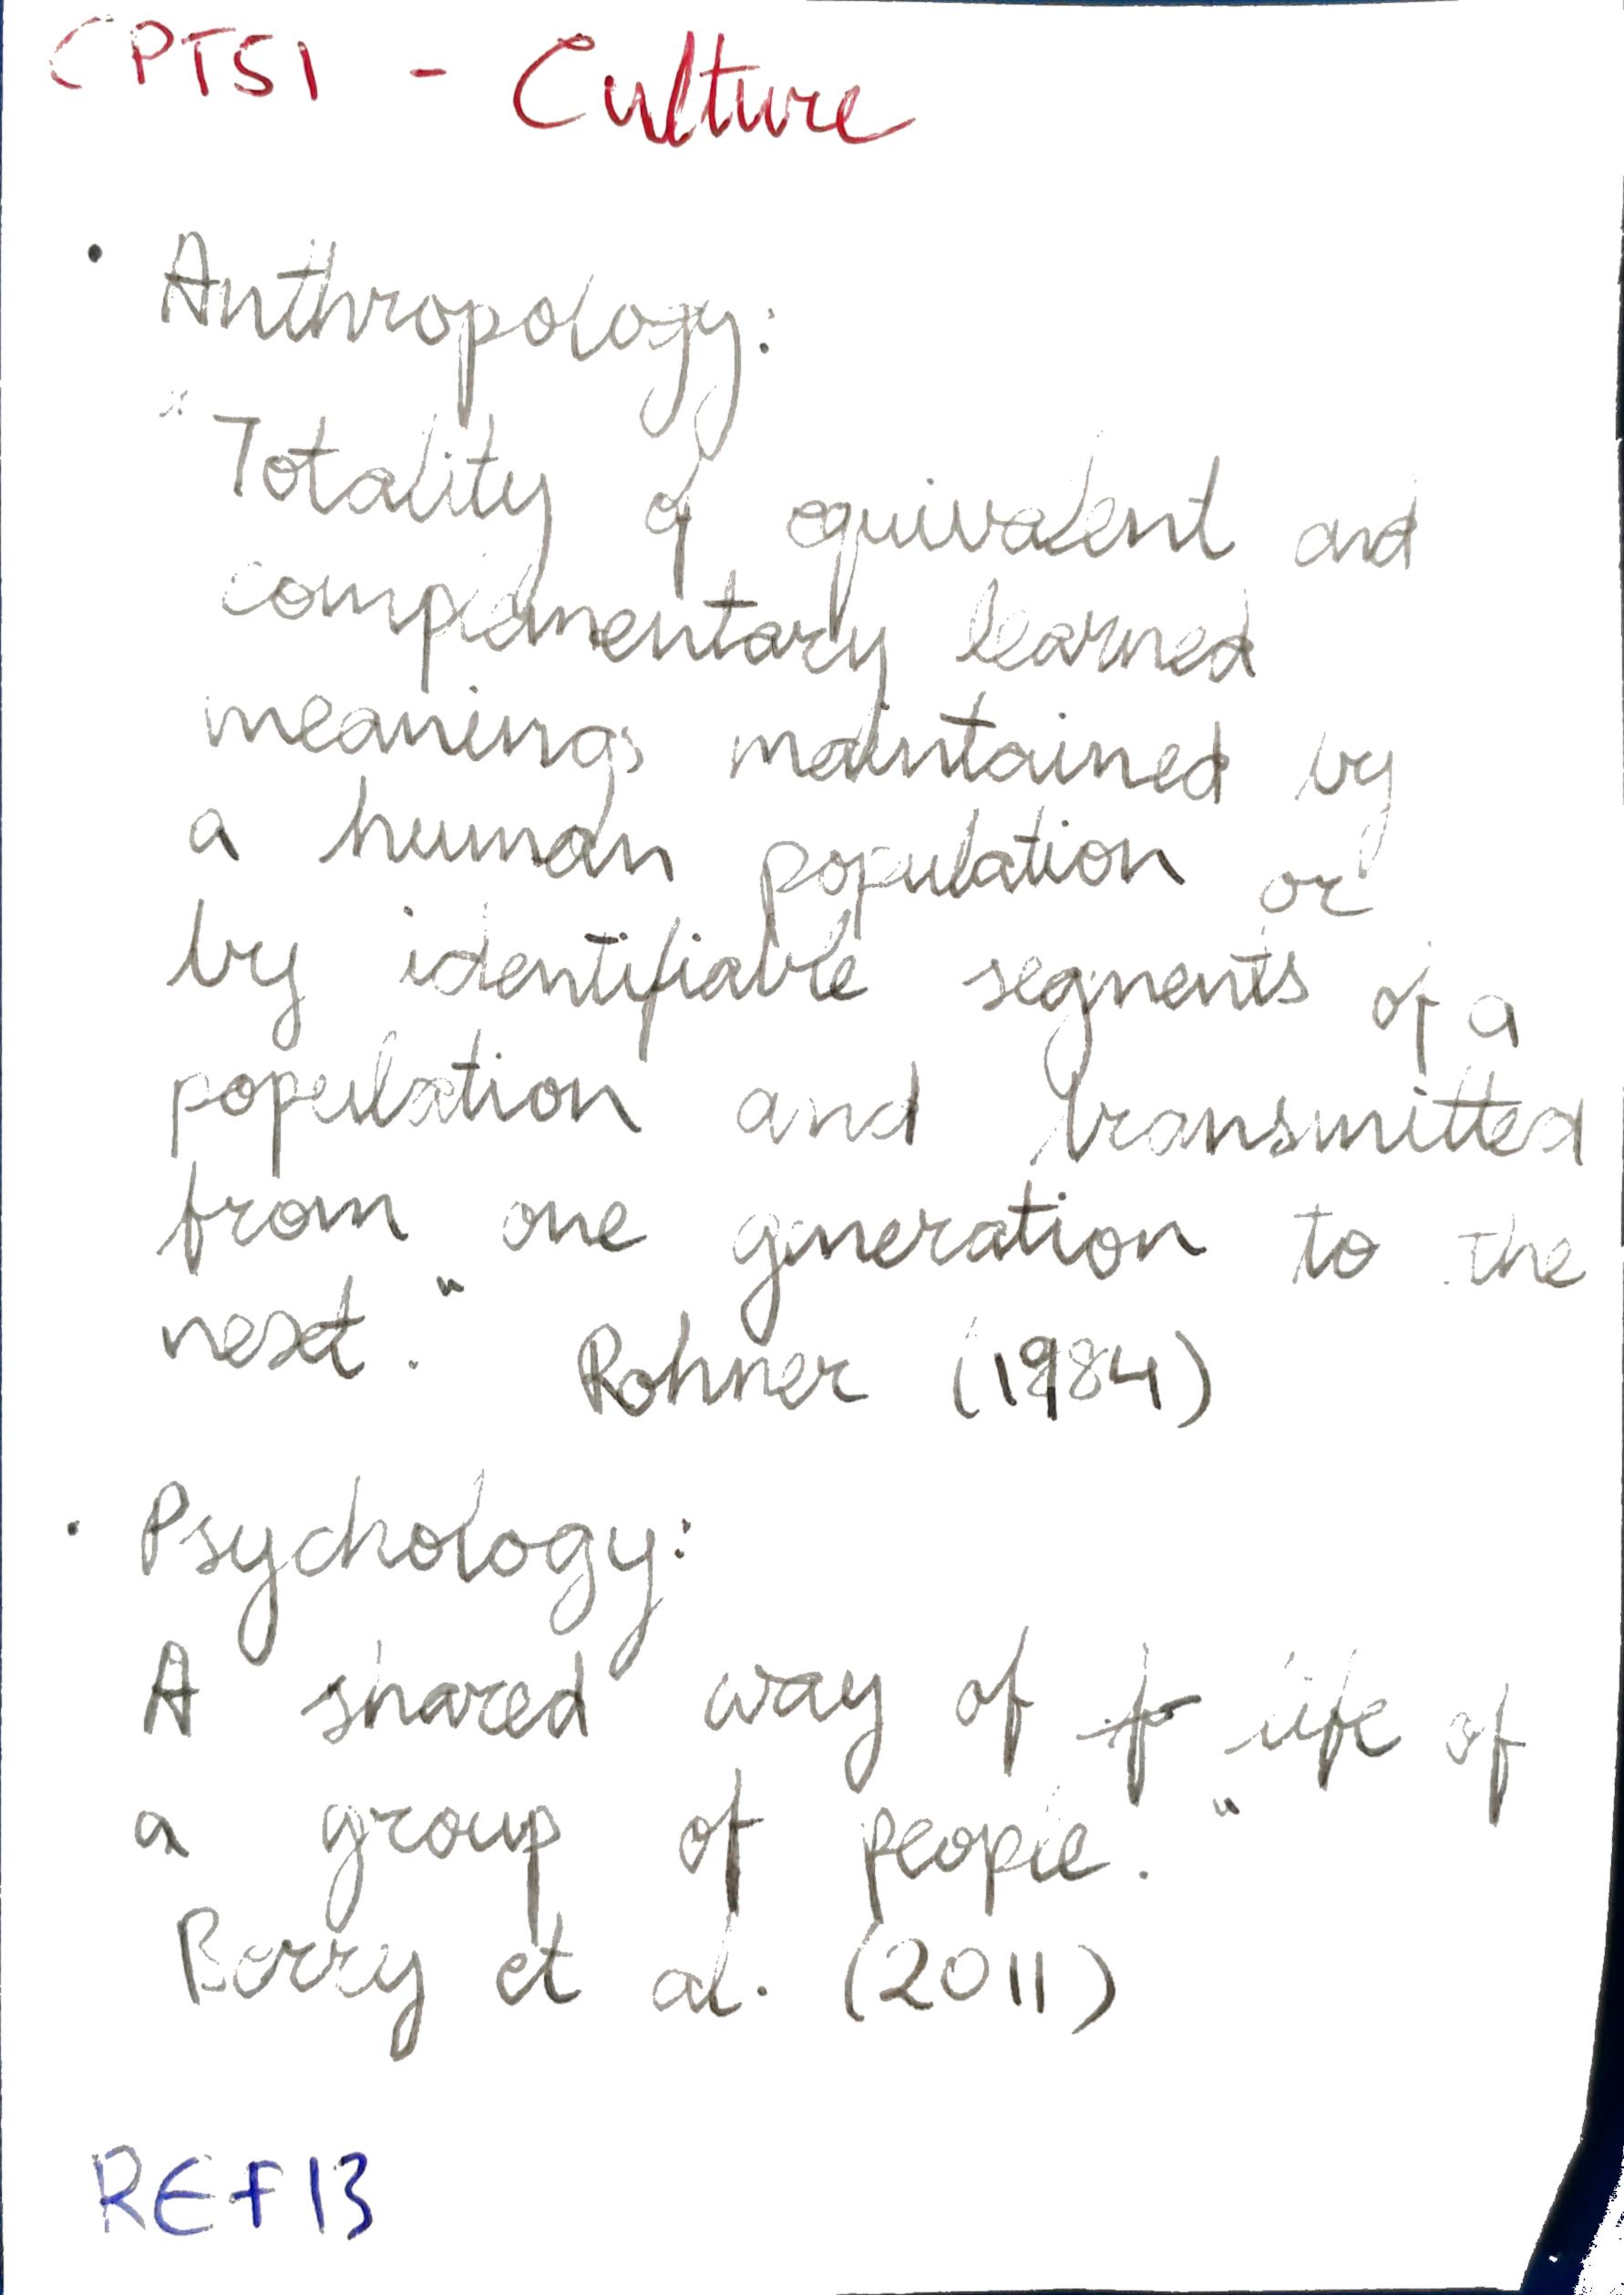 CPTS1 - Culture
• Anthropology:
"Totality of equivalent and
complimentary learned
meanings maintained by
a human population or
by identifiable segments of a
population and transmitted
from one generation to the
next." Rohner (1984)
• Psychology:
A shared way of life of
a group of people."
Berry et al. (2011)
REF13